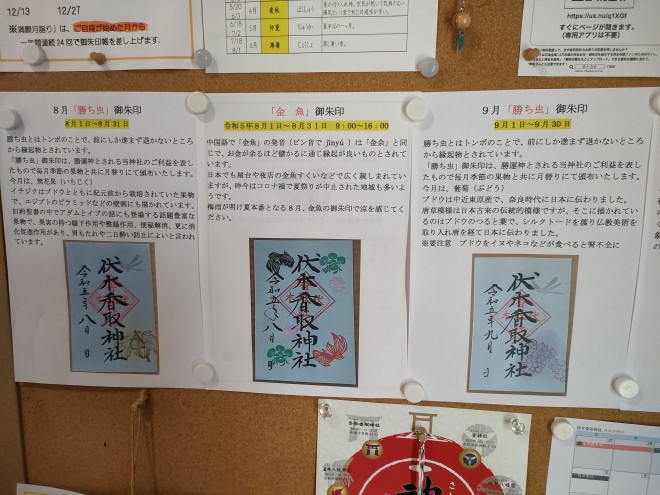 12/13 12/27
※満願月詣り』は、ご自身が始めた月から
一年間連続24回で御朱印帳を差し上げます。
5/20
6/7
麦秋
ばくしゅう
仲夏
ちゅうか
7/18
8/1
6月
https://ux.nu/q1XGf
すぐにページが開きます。
(専用アプリは不要)
8月「勝ち虫」御朱印
8月1日~8月31日
勝ち虫とはトンボのことで、前にしか進まず退かないところ
から縁起物とされています。
「勝ち虫」御朱印は、勝運神とされる当神社のご利益を表し
たもので毎月季節の果物と共に月替りにて頒布いたします。
今月は、無花果(いちじく)
イチジクはブドウとともに紀元前から栽培されていた果物
で、エジプトのピラミッドなどの壁画にも描かれています。
旧約聖書の中でアダムとイブの話にも登場する話題豊富な
果物で、果実の持つ嚥下作用や整腸作用、便秘解消、更に消
化促進作用があり、胃もたれや二日酔い防止によいと言われ
ています。
伏木香取神社
令和五年八月 日
「金 魚」御朱印
令和5年8月1日~8月31日 9:00~16:00
中国語で「金魚」の発音(ピン音で jīnyú )は「金余」と同
じで、お金が余るほど儲かるに通じ縁起が良いものとされて
います。
日本でも縁日や夜店の金魚すくいなどで広く親しまれてい
ますが、昨今はコロナ禍で夏祭りが中止された地域も多いよ
うです。
梅雨が明け夏本番となる8月、金魚の御朱印で涼を感じてく
ださい。
伏木香取神社
令和五年八月 日
9月「勝ち虫」御朱印
9月1日~9月30日
勝ち虫とはトンボのことで、前にしか進まず退かないところ
から縁起物とされています。
「勝ち虫」御朱印は、勝運神とされる当神社のご利益を表し
たもので毎月季節の果物と共に月替りにて頒布いたします。
今月は、葡萄(ぶどう)
ブドウは中近東原産で、奈良時代に日本に伝わりました。
唐草模様は日本古来の伝統的模様ですが、そこに描かれてい
るのはブドウのつると葉で、シルクトードを渡り仏教美術を
取り入れ唐を経て日本に伝わりました。
※要注意 ブドウをイヌやネコなどが食べると腎不全に
伏木香取神社
令和五年九月 日
神